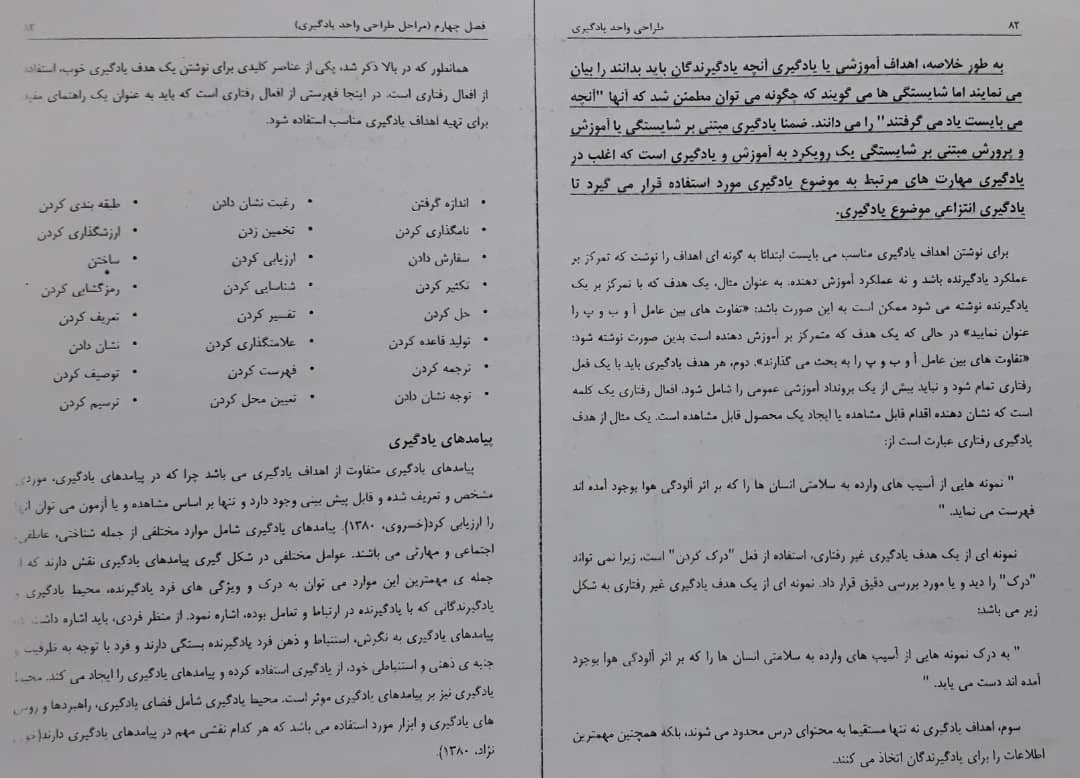 ۸۲
طراحی واحد یادگیری
به طور خلاصه، اهداف آموزشی یا یادگیری آنچه یادگیرندگان باید بدانند را بیان
می نمایند اما شایستگی ها می گویند که چگونه می توان مطمئن شد که آنها "آنچه
می بایست یاد می گرفتند" را می دانند. ضمنا یادگیری مبتنی بر شایستگی یا آموزش
و پرورش مبتنی بر شایستگی یک رویکرد به آموزش و یادگیری است که اغلب در
یادگیری مهارت های مرتبط به موضوع یادگیری مورد استفاده قرار می گیرد تا
یادگیری انتزاعی موضوع یادگیری.
برای نوشتن اهداف یادگیری مناسب می بایست ابتدائا به گونه ای اهداف را نوشت که تمرکز بر
عملکرد یادگیرنده باشد و نه عملکرد آموزش دهنده. به عنوان مثال، یک هدف که با تمرکز بر یک
یادگیرنده نوشته می شود ممکن است به این صورت باشد: «تفاوت های بین عامل أ و ب و پ را
عنوان نمایید» در حالی که یک هدف که متمرکز بر آموزش دهنده است بدین صورت نوشته شود:
«تفاوت های بین عامل أ و ب و پ را به بحث می گذارند». دوم، هر هدف یادگیری باید با یک فعل
رفتاری تمام شود و نباید بیش از یک برونداد آموزشی عمومی را شامل شود. افعال رفتاری یک کلمه
است که نشان دهنده اقدام قابل مشاهده یا ایجاد یک محصول قابل مشاهده است. یک مثال از هدف
یادگیری رفتاری عبارت است از:
" نمونه هایی از آسیب های وارده به سلامتی انسان ها را که بر اثر آلودگی هوا بوجود آمده اند
فهرست می نماید. "
نمونه ای از یک هدف یادگیری غیر رفتاری، استفاده از فعل "درک کردن" است، زیرا نمی تواند
"درک" را دید و یا مورد بررسی دقیق قرار داد. نمونه ای از یک هدف یادگیری غیر رفتاری به شکل
زیر می باشد:
" به درک نمونه هایی از آسیب های وارده به سلامتی انسان ها را که بر اثر آلودگی هوا بوجود
آمده اند دست می یابد. "
سوم، اهداف یادگیری نه تنها مستقیما به محتوای درس محدود می شوند، بلکه همچنین مهمترین
اطلاعات را برای یادگیرندگان اتخاذ می کنند.
فصل چهارم (مراحل طراحی واحد یادگیری)
۸۳
همانطور که در بالا ذکر شد، یکی از عناصر کلیدی برای نوشتن یک هدف یادگیری خوب، استفاده
از افعال رفتاری است. در اینجا فهرستی از افعال رفتاری است که باید به عنوان یک راهنمای مفید
برای تهیه اهداف یادگیری مناسب استفاده شود.
• اندازه گرفتن • رغبت نشان دادن • طبقه بندی کردن
• نامگذاری کردن • تخمین زدن • ارزشگذاری کردن
• سفارش دادن • ارزیابی کردن • ساختن
• تکثیر کردن • شناسایی کردن • رمزگشایی کردن
• حل کردن • تفسیر کردن • تعریف کردن
• تولید قاعده کردن • علامتگذاری کردن • نشان دادن
• ترجمه کردن • فهرست کردن • توصیف کردن
• توجه نشان دادن • تعیین محل کردن • ترسیم کردن
پیامدهای یادگیری
پیامدهای یادگیری متفاوت از اهداف یادگیری می باشد چرا که در پیامدهای یادگیری، موردی
مشخص و تعریف شده و قابل پیش بینی وجود دارد و تنها بر اساس مشاهده و یا آزمون می توان آنها
را ارزیابی کرد(خسروی، ۱۳۸۰). پیامدهای یادگیری شامل موارد مختلفی از جمله شناختی، عاطفی،
اجتماعی و مهارتی می باشند. عوامل مختلفی در شکل گیری پیامدهای یادگیری نقش دارند که از
جمله ی مهمترین این موارد می توان به درک و ویژگی های فرد یادگیرنده، محیط یادگیری و
یادگیرندگانی که با یادگیرنده در ارتباط و تعامل بوده، اشاره نمود. از منظر فردی، باید اشاره داشت
پیامدهای یادگیری به نگرش، استنباط و ذهن فرد یادگیرنده بستگی دارند و فرد با توجه به ظرفیت و
جنبه ی ذهنی و استنباطی خود، از یادگیری استفاده کرده و پیامدهای یادگیری را ایجاد می کند. محیط
یادگیری نیز بر پیامدهای یادگیری موثر است. محیط یادگیری شامل فضای یادگیری، راهبردها و روش
های یادگیری و ابزار مورد استفاده می باشد که هر کدام نقشی مهم در پیامدهای یادگیری دارند(
نژاد، ۱۳۸۰).